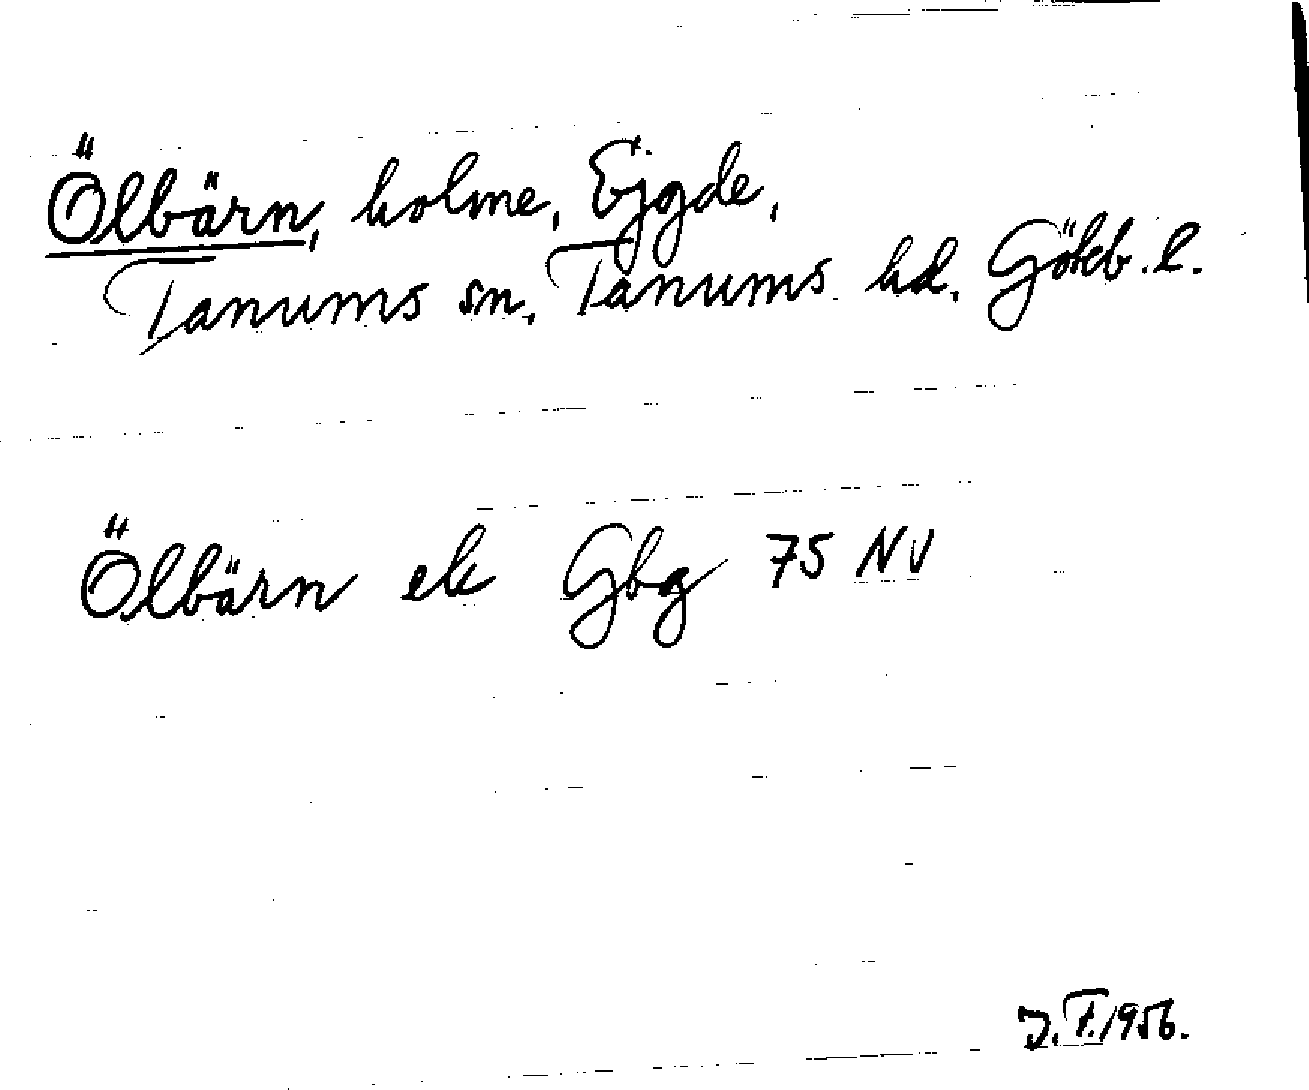 Ölbärn, holme, Ejgde,
Tanums sn. Tanums hd. Götb. l.
Ölbärn ek Gbg 75 NV
J. F. 1956.